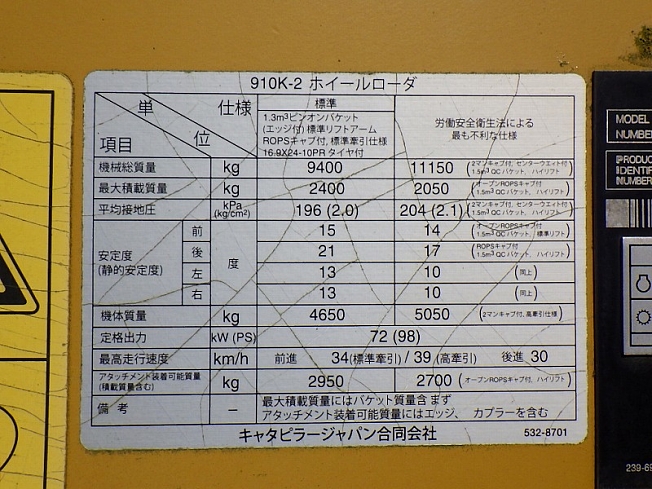 910K-2 ホイールローダ
単 仕様 標準
1.3m³ピンオンバケット
(エッジ付) 標準リフトアーム
ROPSキャブ付, 標準牽引仕様
16.9X24-10PR タイヤ付
労働安全衛生法による
最も不利な仕様
項目 位
機械総質量 kg 9400 11150 (2マンキャブ付, センターウエイト付 1.5m³ QC バケット、ハイリフト)
最大積載質量 kg 2400 2050 (オープンROPSキャブ付 1.5m³ QC バケット、ハイリフト)
平均接地圧 kPa (kg/cm²) 196 (2.0) 204 (2.1) (2マンキャブ付, センターウエイト付 1.5m³ QC バケット、ハイリフト)
安定度 (静的安定度) 度
前 15 14 (オープンROPSキャブ付 1.5m³ QC バケット、標準リフト)
後 21 17 (ROPSキャブ付 1.5m³ QC バケット、ハイリフト)
左 13 10 (同上)
右 13 10 (同上)
機体質量 kg 4650 5050 (2マンキャブ付, 高牽引仕様)
定格出力 kW (PS) 72 (98)
最高走行速度 km/h 前進 34(標準牽引) / 39 (高牽引) 後進 30
アタッチメント装着可能質量 (積載質量含む) kg 2950 2700 (オープンROPSキャブ付, ハイリフト)
備考 – 最大積載質量にはバケット質量含まず
アタッチメント装着可能質量にはエッジ、 カプラーを含む
キャタピラージャパン合同会社 532-8701
MODEL
NUMBE
PRODUC
IDENTIF
NUMBER
239-69